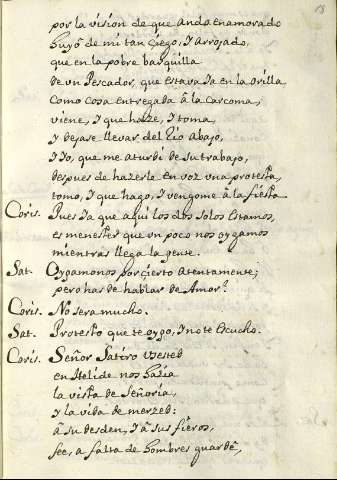 18
por la vision de que anda enamorado
huyô de mi tan çiego, y arrojado,
que en la pobre barquilla
de un Pescador, que estava ya en la orilla
como cosa entregada â la carcoma,
viene, y que haze, y toma,
y dejase llevar del Rio abajo,
y yo, que me aturdi de su trabajo,
despues de hazerle en voz una protesta,
tomo, y que hago, y vengome â la fiesta.
Coris. Pues ya que aqui los dos solos estamos,
es menester que un poco nos oygamos
mientras llega la gente.
Sat. Oygamonos por çierto atentamente;
pero has de hablar de Amor?
Coris. No sera mucho.
Sat. Protesto que te oygo, y no te escucho.
Coris. Señor Satiro usted
en Itelide nos hazia
la vista de Señoria,
y la vida de merzed:
â su desden, y â sus fieros,
fee, a falta de hombres guardê,